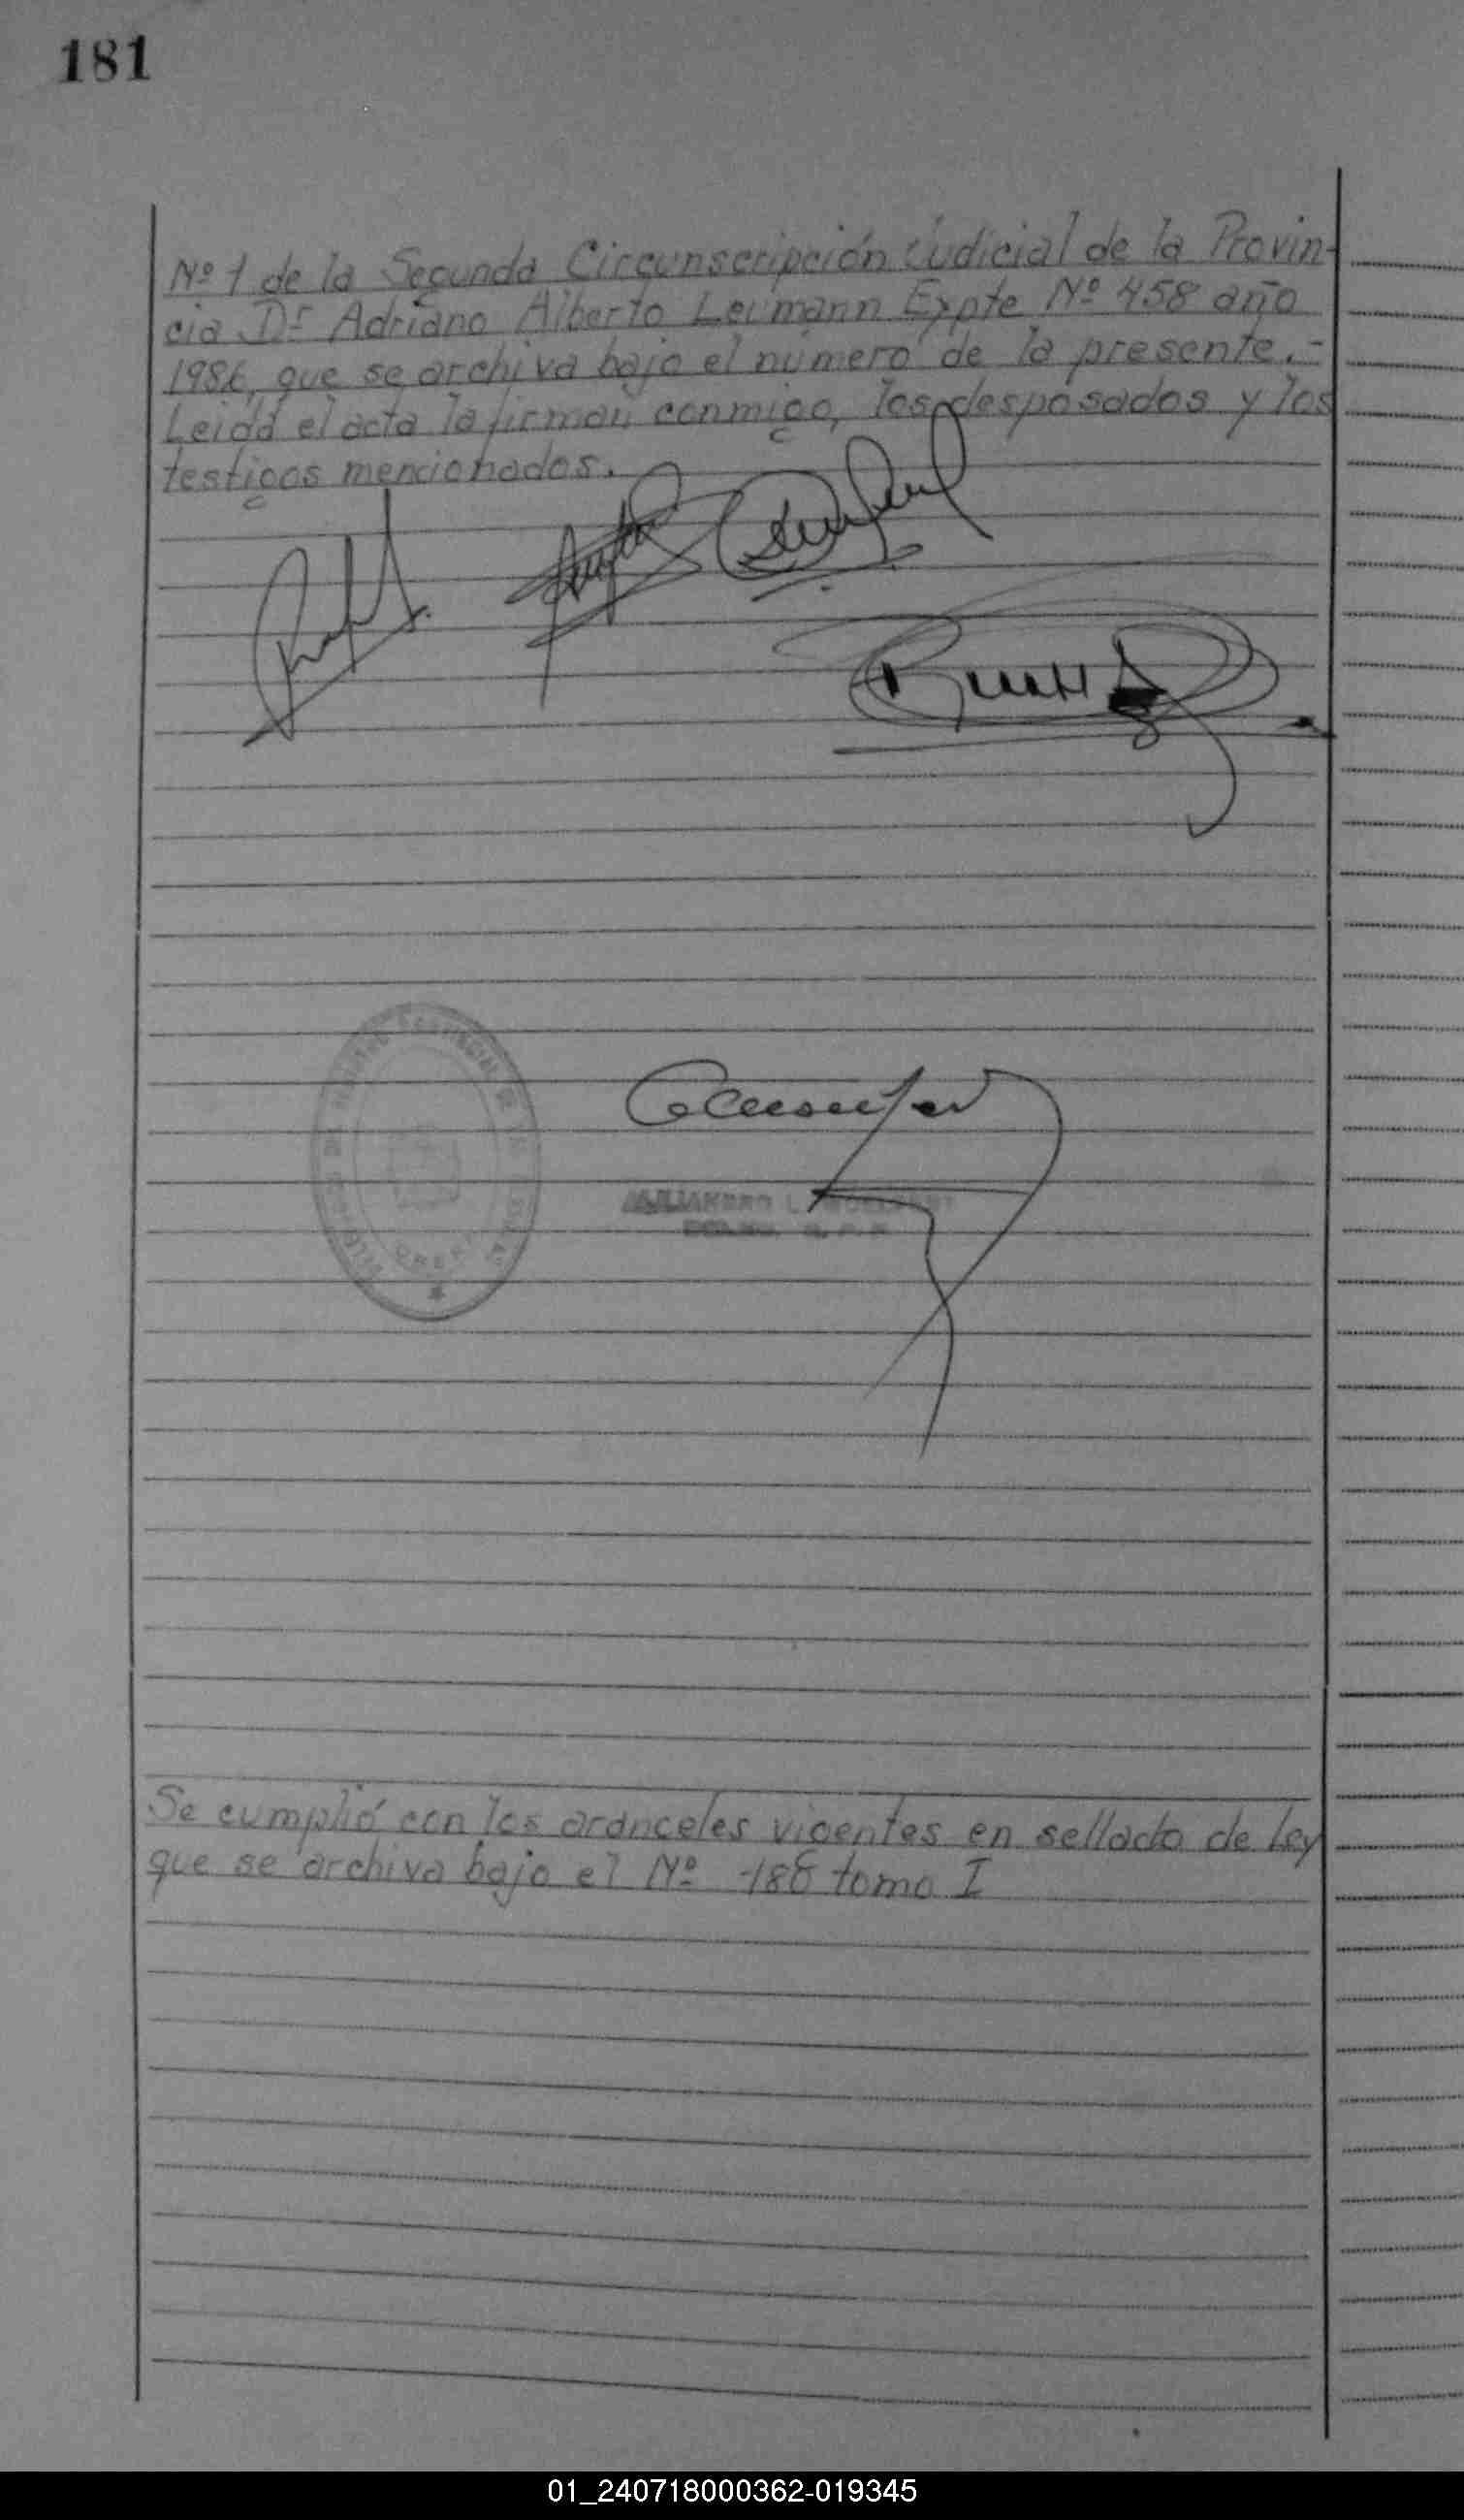 181
Nº 1 de la Segunda Circunscripción Judicial de la Provin-
cia Dr Adriano Alberto Leumann Expte Nº 458 año
1986, que se archiva bajo el número de la presente.-
Leida el acta la firman conmigo, los desposados y los
testigos mencionados.
Se cumplió con los aranceles vigentes en sellado de Ley
que se archiva bajo el Nº 186 tomo I
01_240718000362-019345